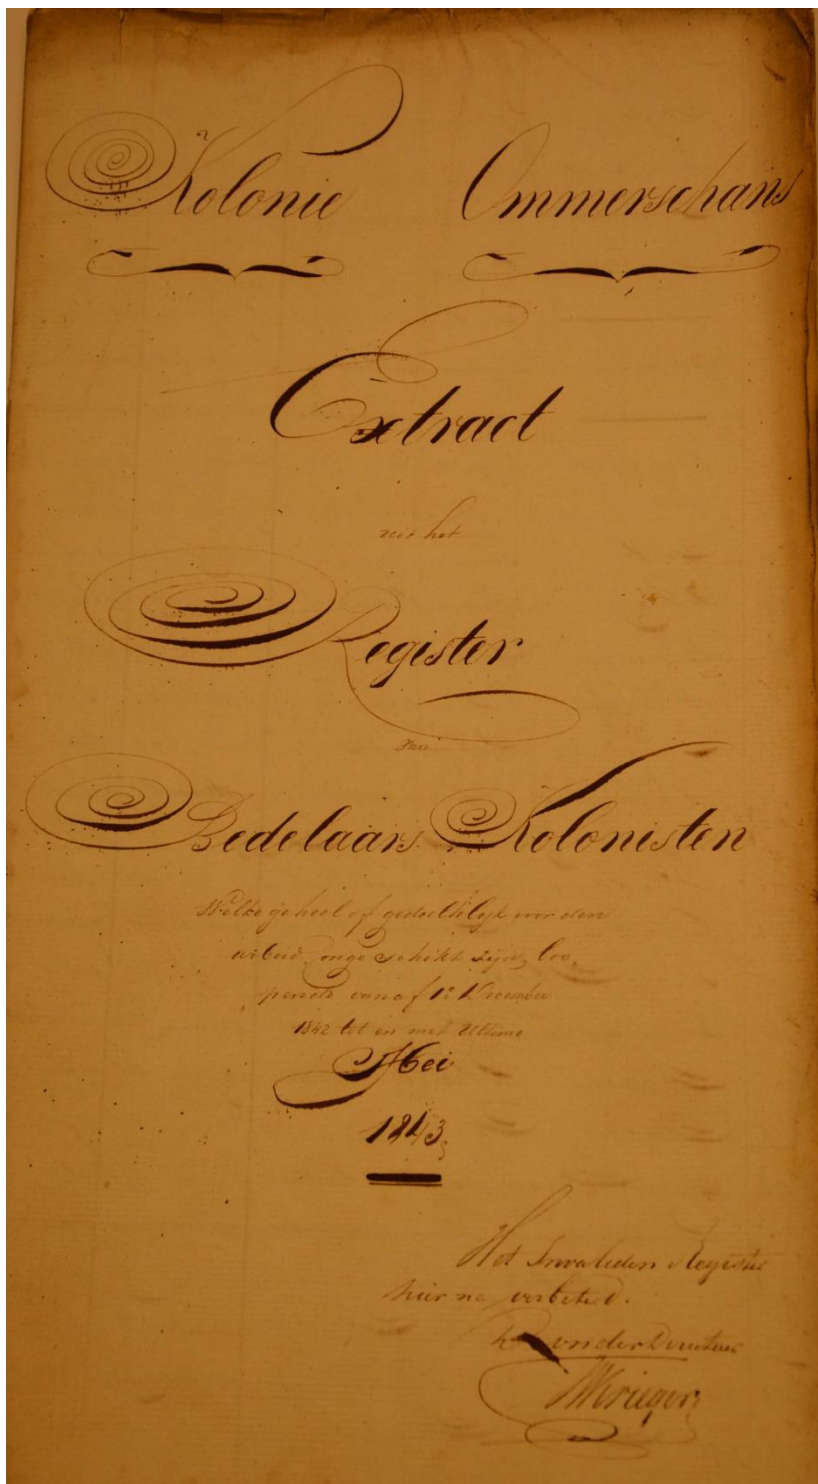 Kolonie Ommerschans
Extract
uit het
Register
van
Bedelaars Kolonisten
Welke geheel of gedeeltelijk voor den
arbeid ongeschikt zijn, loo„
pende van af 1e December
1842 tot en met Ultimo
Mei
1843,
Het Invaliden Register
hier na verbeterd.
onder Directeur
Krieger